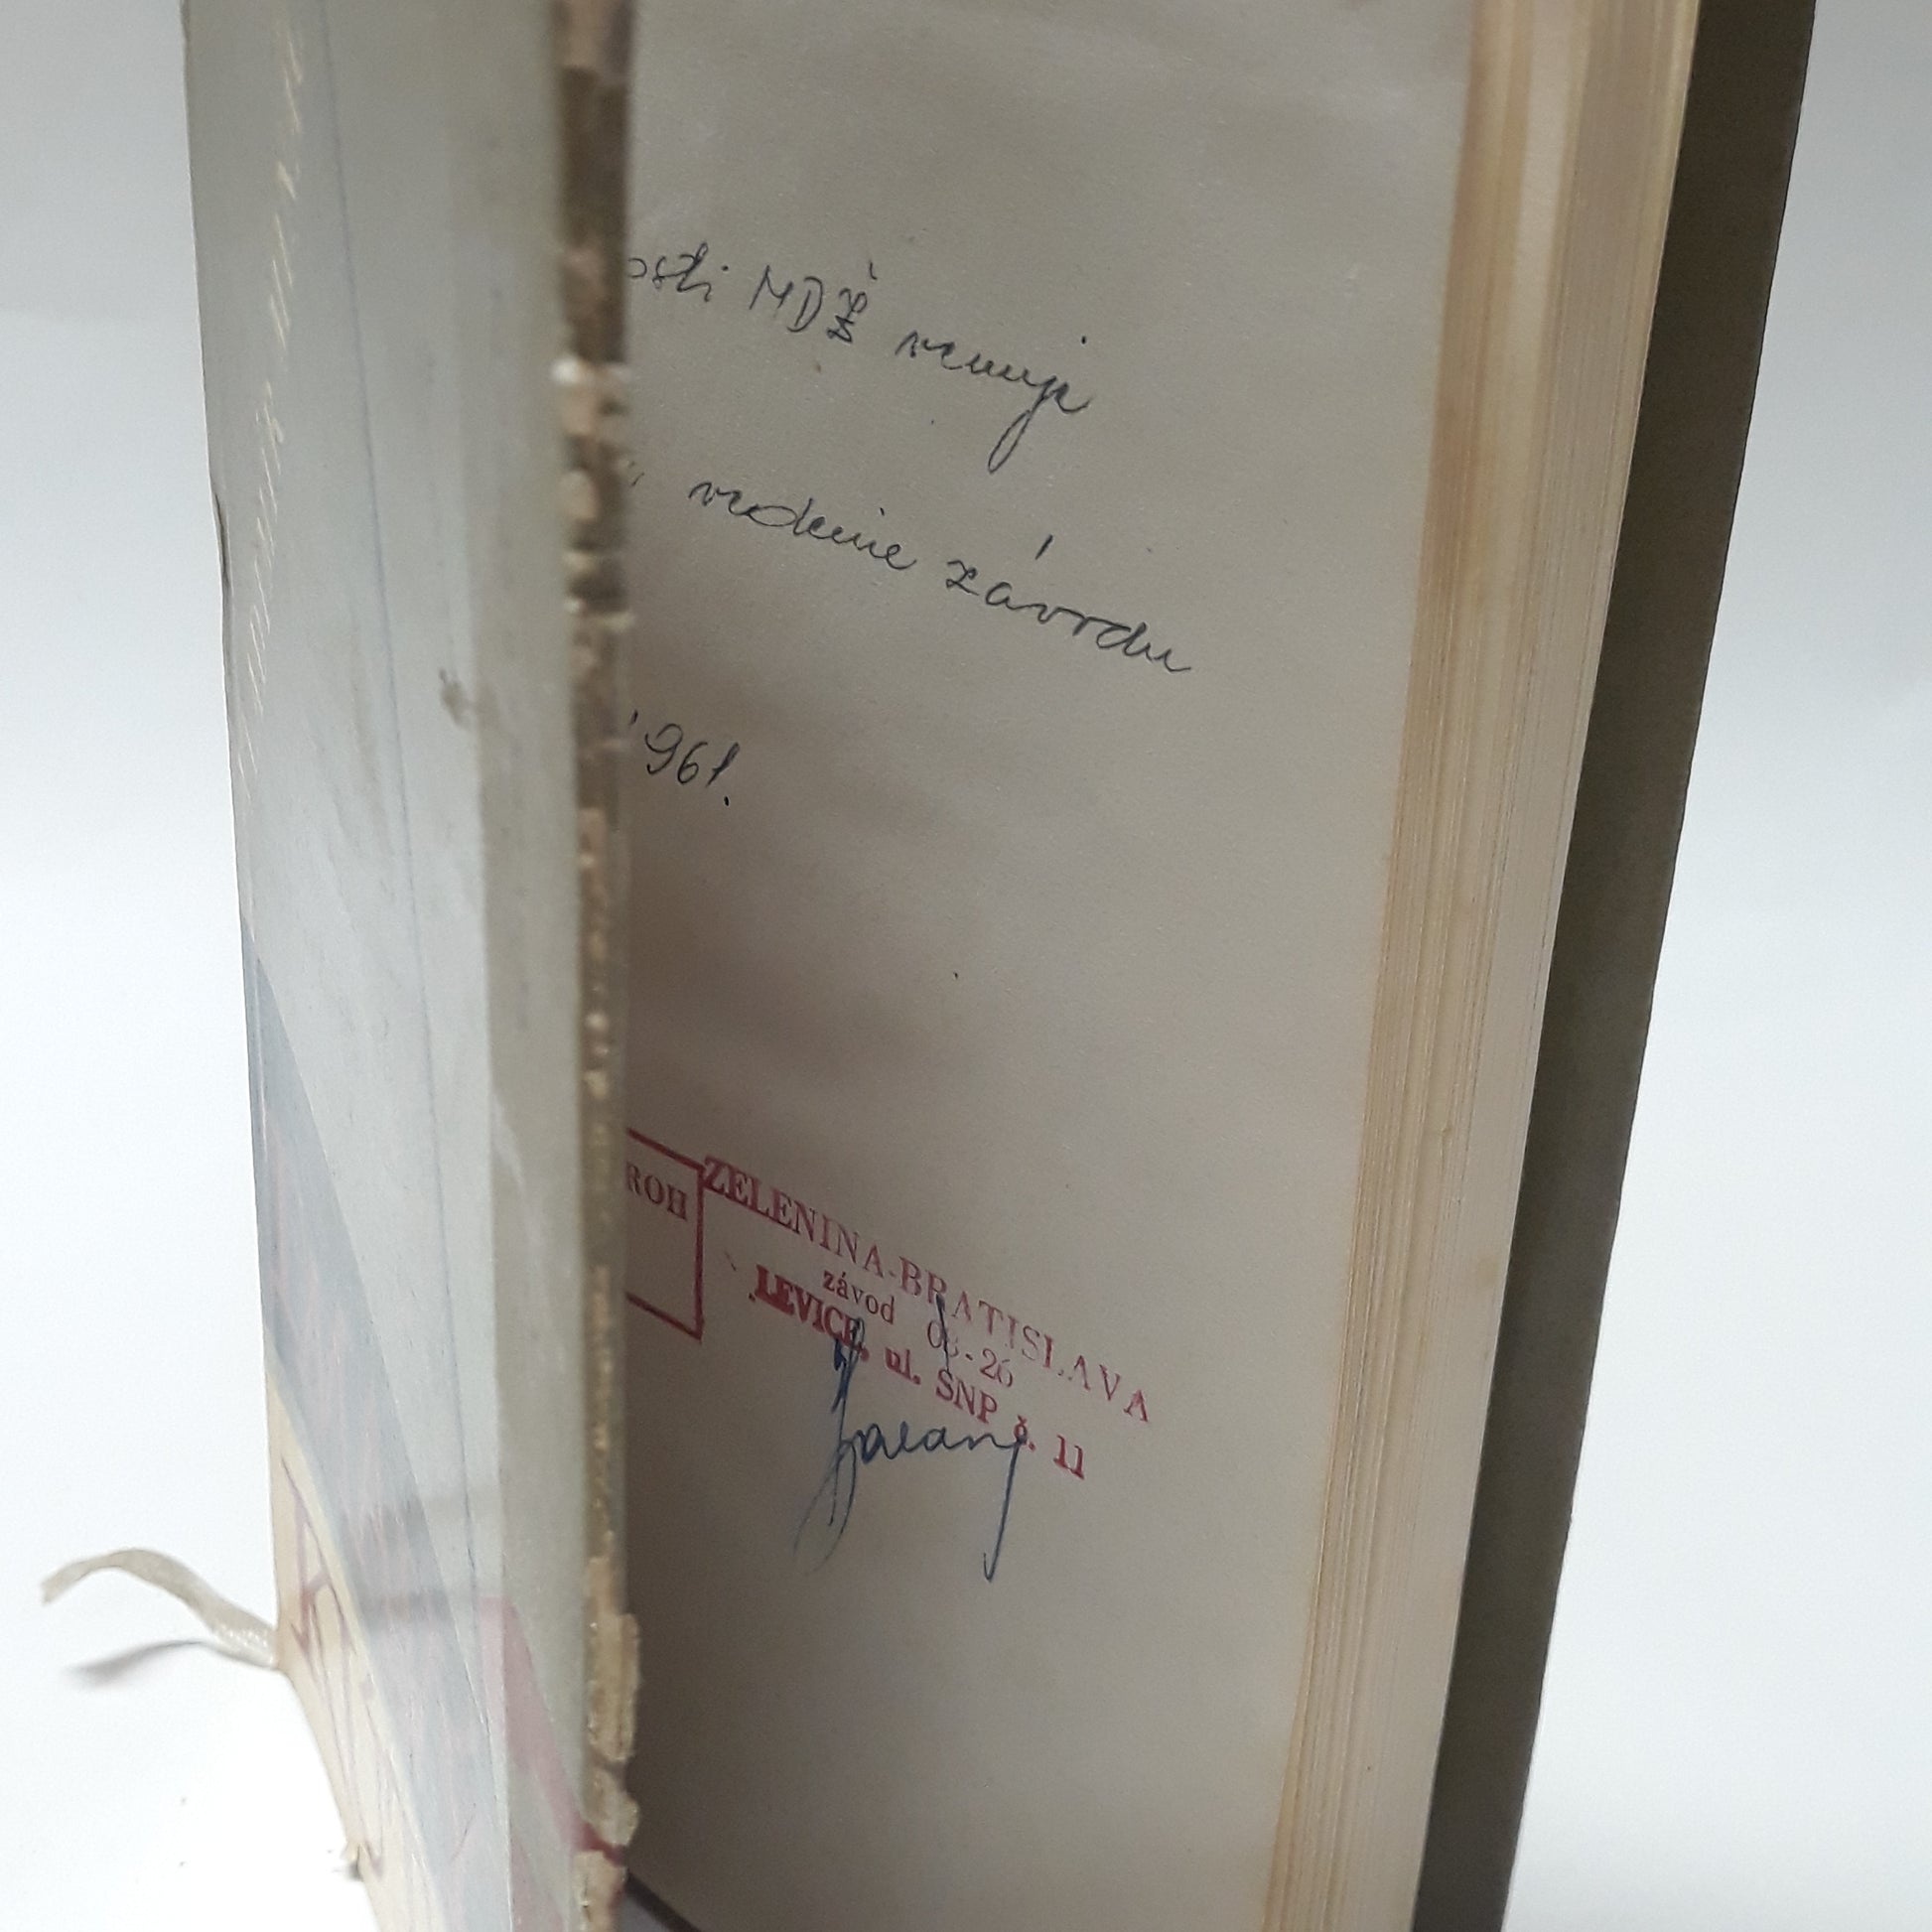 osti MDŽ venuje
vedenie závodu
1961.
ROH
ZELENINA-BRATISLAVA
závod 06-26
LEVICE, ul. SNP č. 11